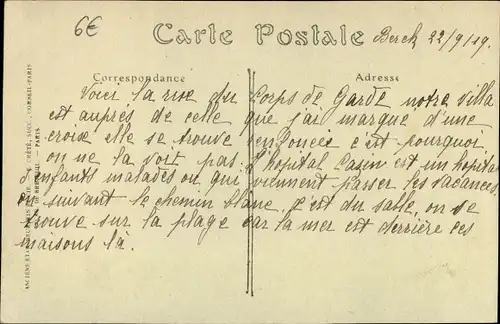 6€
Carte Postale
Berck 22/9/19.
Correspondance
Adresse
Voici la rue du Corps de Garde notre villa
est auprès de celle que j'ai marqué d'une
croix elle se trouve enfoncée c'est pourquoi
on ne la voit pas. L'hopital Cazin est un hopital
d'enfants malades ou qui viennent passer les vacances.
En suivant le chemin blanc, c'est du sable, on se
trouve sur la plage car la mer est derrière ces
maisons là.